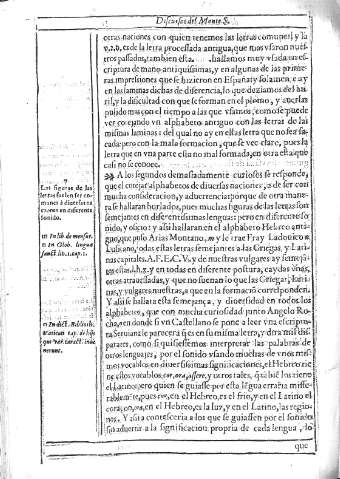 Discursos del Monte S.
otras naciones con quien tenemos las letras comunes, y la
v.z.d. ceda letra processada antigua, que mas vsaron nues-
tros passados, tambien esta. hallamos muy vsada en es-
criptura de mano antiquissima, y en algunas de las prime-
ras impresiones que se hizieron en España, y solamen. e ay
en las laminas dichas de diferencia, lo que deziamos del ba-
ril, y la dificultad con que se forman en el plomo, y auerlas
pulado mas con el tiempo a las que vsamos, como se puede
ver cotejando vn alphabeto antiguo con las letras de las
mismas laminas: del qual no ay en ellas letra que no sea
cada: pero con la mala formacion, que se vee claro, pues la
letra que en vna parte està no mal formada, en otra esta que
casi no se conoce.
A los segundos demasiadamente curiosos se responde,
que el cotejar alphabetos de diuersas naciones, a de ser con
mucha consideracion, y aduertencia: porque de otra mane-
ra se hallaran burlados, pues muchas figuras de las letras son
semejantes en diferentissimas lenguas: pero en diferente so
nido, y oficio: y asi hallaran en el alphabeto Hebreo anti-
guo, que puso Arias Montano,
todas estas letras semejantes a las Griegas, y La-
tinas capitales. A.F.E.C.V. y de nuestras vulgares ay semeja-
y en todas en diferente postura, caydas vnas,
otras atrauessadas, y que no suenan lo que las Griegas, Lati-
nas, y vulgares nuestras, a que en la formacion corresponden.
Y asi se hallara esta semejança, y diuersidad en todos los
alphabetos, que con mucha curiosidad junto Angelo Ro-
cha, en donde si vn Castellano se pone a leer vna escriptu-
ra Seruiana le parecera que es su misma letra, y dira mil dis-
parates, como si quisiessemos interpretar las palabras de
otros lenguajes, por el sonido vsando muchas de vnos mes-
mos vocablos, en diuersissimas significaciones, el Hebreo tie-
ne estos vocablos, cor, ora, assere, y otros tales, que tābiē los tiene
el Latino, pero quien se guiasse por esta lēgua erraria misse-
rablemente, pues cor, en el Hebreo, es el frio, y en el Latino el
coraçon, ora, en el Hebreo, es la luz, y en el Latino, las regio-
nes. Y asi acontesceria a los que se guiassen por el sonido
sin aduertir a la significacion propria de cada lengua, lo
que
7
Las figuras de las
letras suelen ser co-
munes a diuersas na
ciones en diferente
sonido.